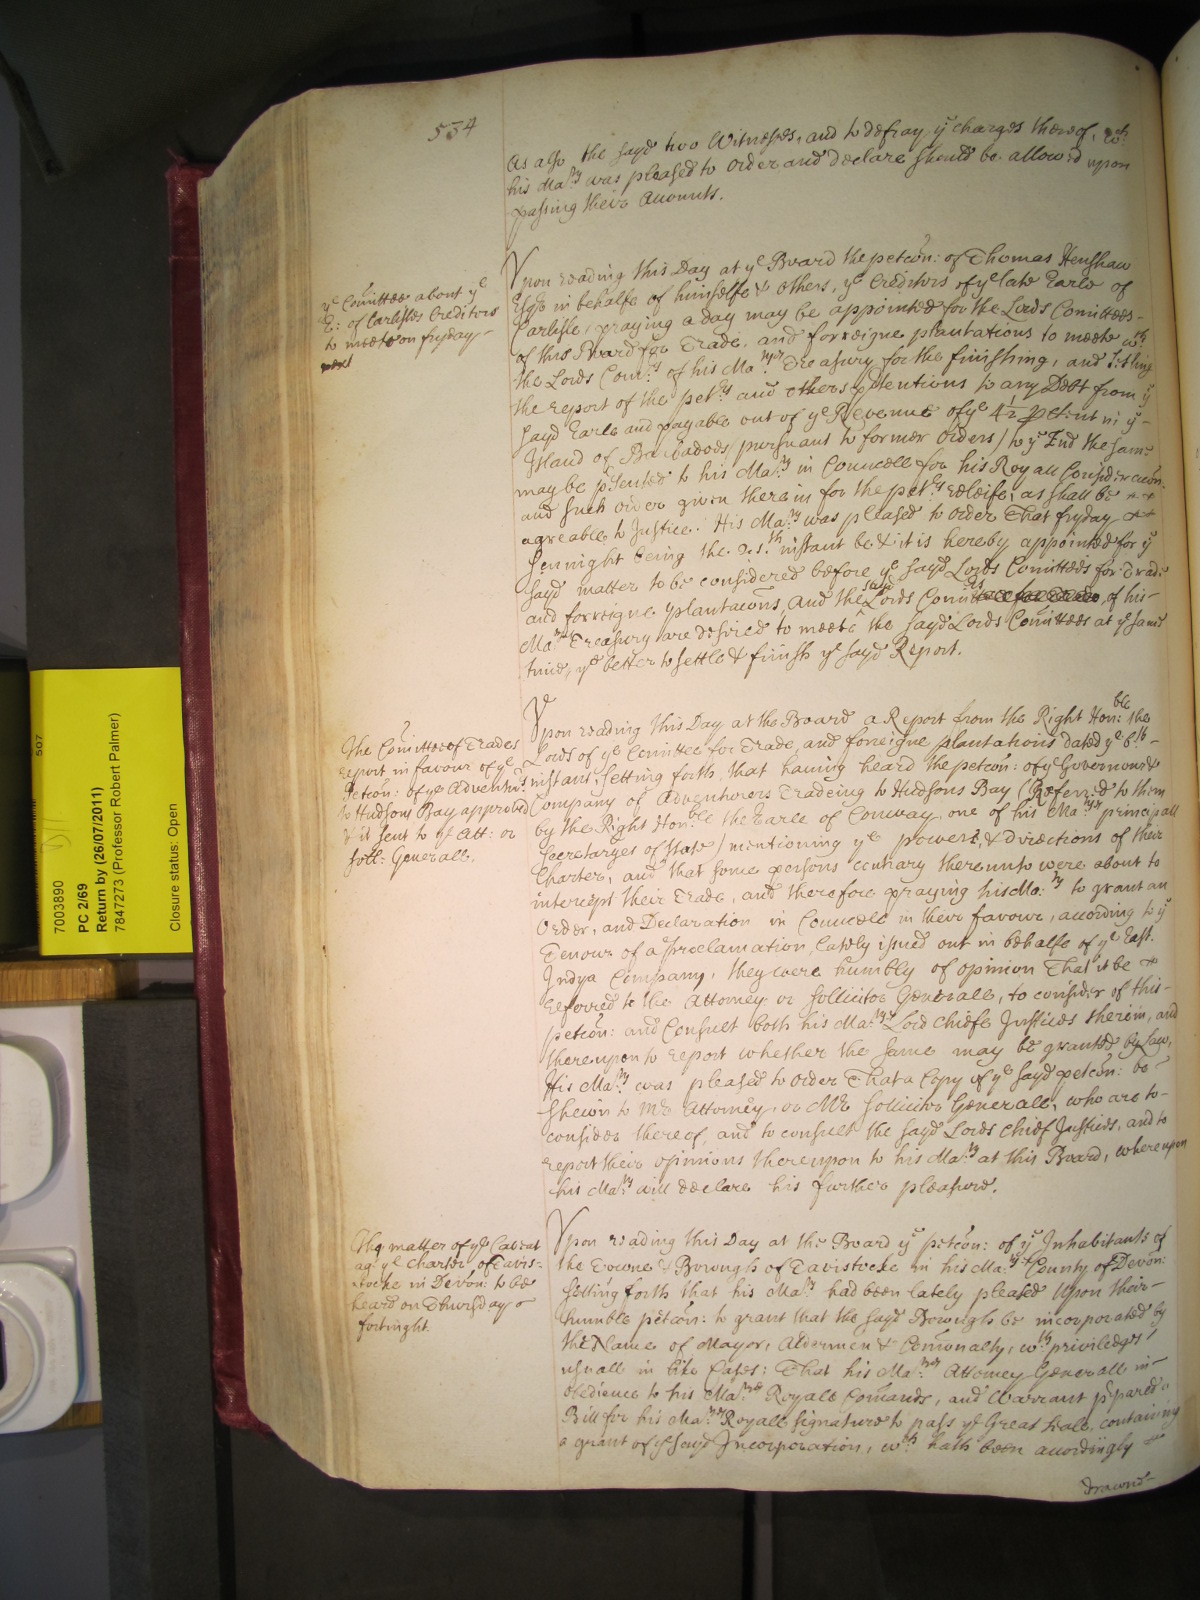 534
As also the sayd two Witnesses, and to defray ye charges thereof, wch
his Ma:ty was pleased to order and declare should be allowed upon
passing their Accounts.
ye Comittee about ye
E: of Carlisles Creditors
to meete on fryday
next
Vpon reading this Day at ye Board the petcon: of Thomas Henshaw
Esqr in behalfe of himselfe & others, ye Creditors of ye late Earle of
Carlisle, praying a day may be appointed for the Lords Comittees
of this Board for Trade, and forreigne plantations to meete wth
the Lords Com:rs of his Ma:tyes Treasury for the finishing, and setling
the report of the pet:rs and others ptentions to any Debt from ye
sayd Earle and payable out of ye Revenue of ye 4½ p Cent in ye
Island of Barbadoes / pursuant to former orders / to ye End the same
may be psented to his Ma:ty in Councell for his Royall Consideracon
and such order given therein for the pet:rs releife, as shall be
agreable to Justice. His Ma:ty was pleased to order That fryday
sennight being the 21:th instant be & it is hereby appointed for ye
sayd matter to be considered before ye sayd Lords Comittees for Trade
and forreigne plantacons, And the sayd Lords Comrs of his
Ma:tyes Treasury are desired to meete the sayd Lords Comittees at ye same
time, ye better to settle & finish ye sayd Report.
The Comittee of Trades
report in favour of ye
Petcon: of ye Adventurs
to Hudsons Bay approved
& it sent to ye Att: or
soll: Generall.
Vpon reading this Day at the Board a Report from the Right Hon:ble the
Lords of ye Comittee for Trade, and foreigne plantations dated ye 6:th
instant, setting forth, that having heard the petcon: of ye Governour &
Company of Adventurers Tradeing to Hudsons Bay (Referred to them
by the Right Hon:ble the Earle of Conway, one of his Ma:tyes principall
Secretaryes of State / mentioning ye powers, & directions of their
Charter, and that some persons contrary thereunto were about to
interrupt their Trade, and therefore praying his Ma:ty to grant an
Order, and Declaration in Councell in their favour, according to ye
Tenour of a Proclamation lately issued out in behalfe of ye East
Indya Company, they were humbly of opinion That it be
referred to the Attorney or Sollicitor Generall, to consider of this
petcon: and Consult both his Ma:tyes Lord Chiefe Justices therein, and
thereupon to report whether the same may be granted by Law,
His Ma:ty was pleased to order That a Copy of ye sayd petcon: be
shewn to Mr Attorney, or Mr Sollicitor Generall, who are to
consider thereof, and to consult the sayd Lords Chief Justices, and to
report their opinions thereupon to his Ma:ty at this Board, whereupon
his Ma:ty will declare his further pleasure.
The matter of ye Caveat
agt ye Charter of Tavis-
tocke in Devon: to be
heard on Thursday
fortnight.
Vpon reading this Day at the Board ye petcon: of ye Inhabitants of
the Towne & Borough of Tavistocke in his Ma:tyes County of Devon:
setting forth that his Ma:ty had been lately pleased Upon their
humble petcon: to grant that the sayd Borough be incorporated by
the Name of Mayor, Aldermen & Comonalty, wth priviledges
usuall in like Cases: That his Ma:tyes Attorney Generall in
obedience to his Ma:tyes Royall Comands, and Warrant ppared a
Bill for his Ma:tyes Royall signature to pass ye Great Seale, containing
a grant of ye sayd Incorporation, wch hath been accordingly
drawne
507
7003890
PC 2/69
Return by (26/07/2011)
7847273 (Professor Robert Palmer)
Closure status: Open